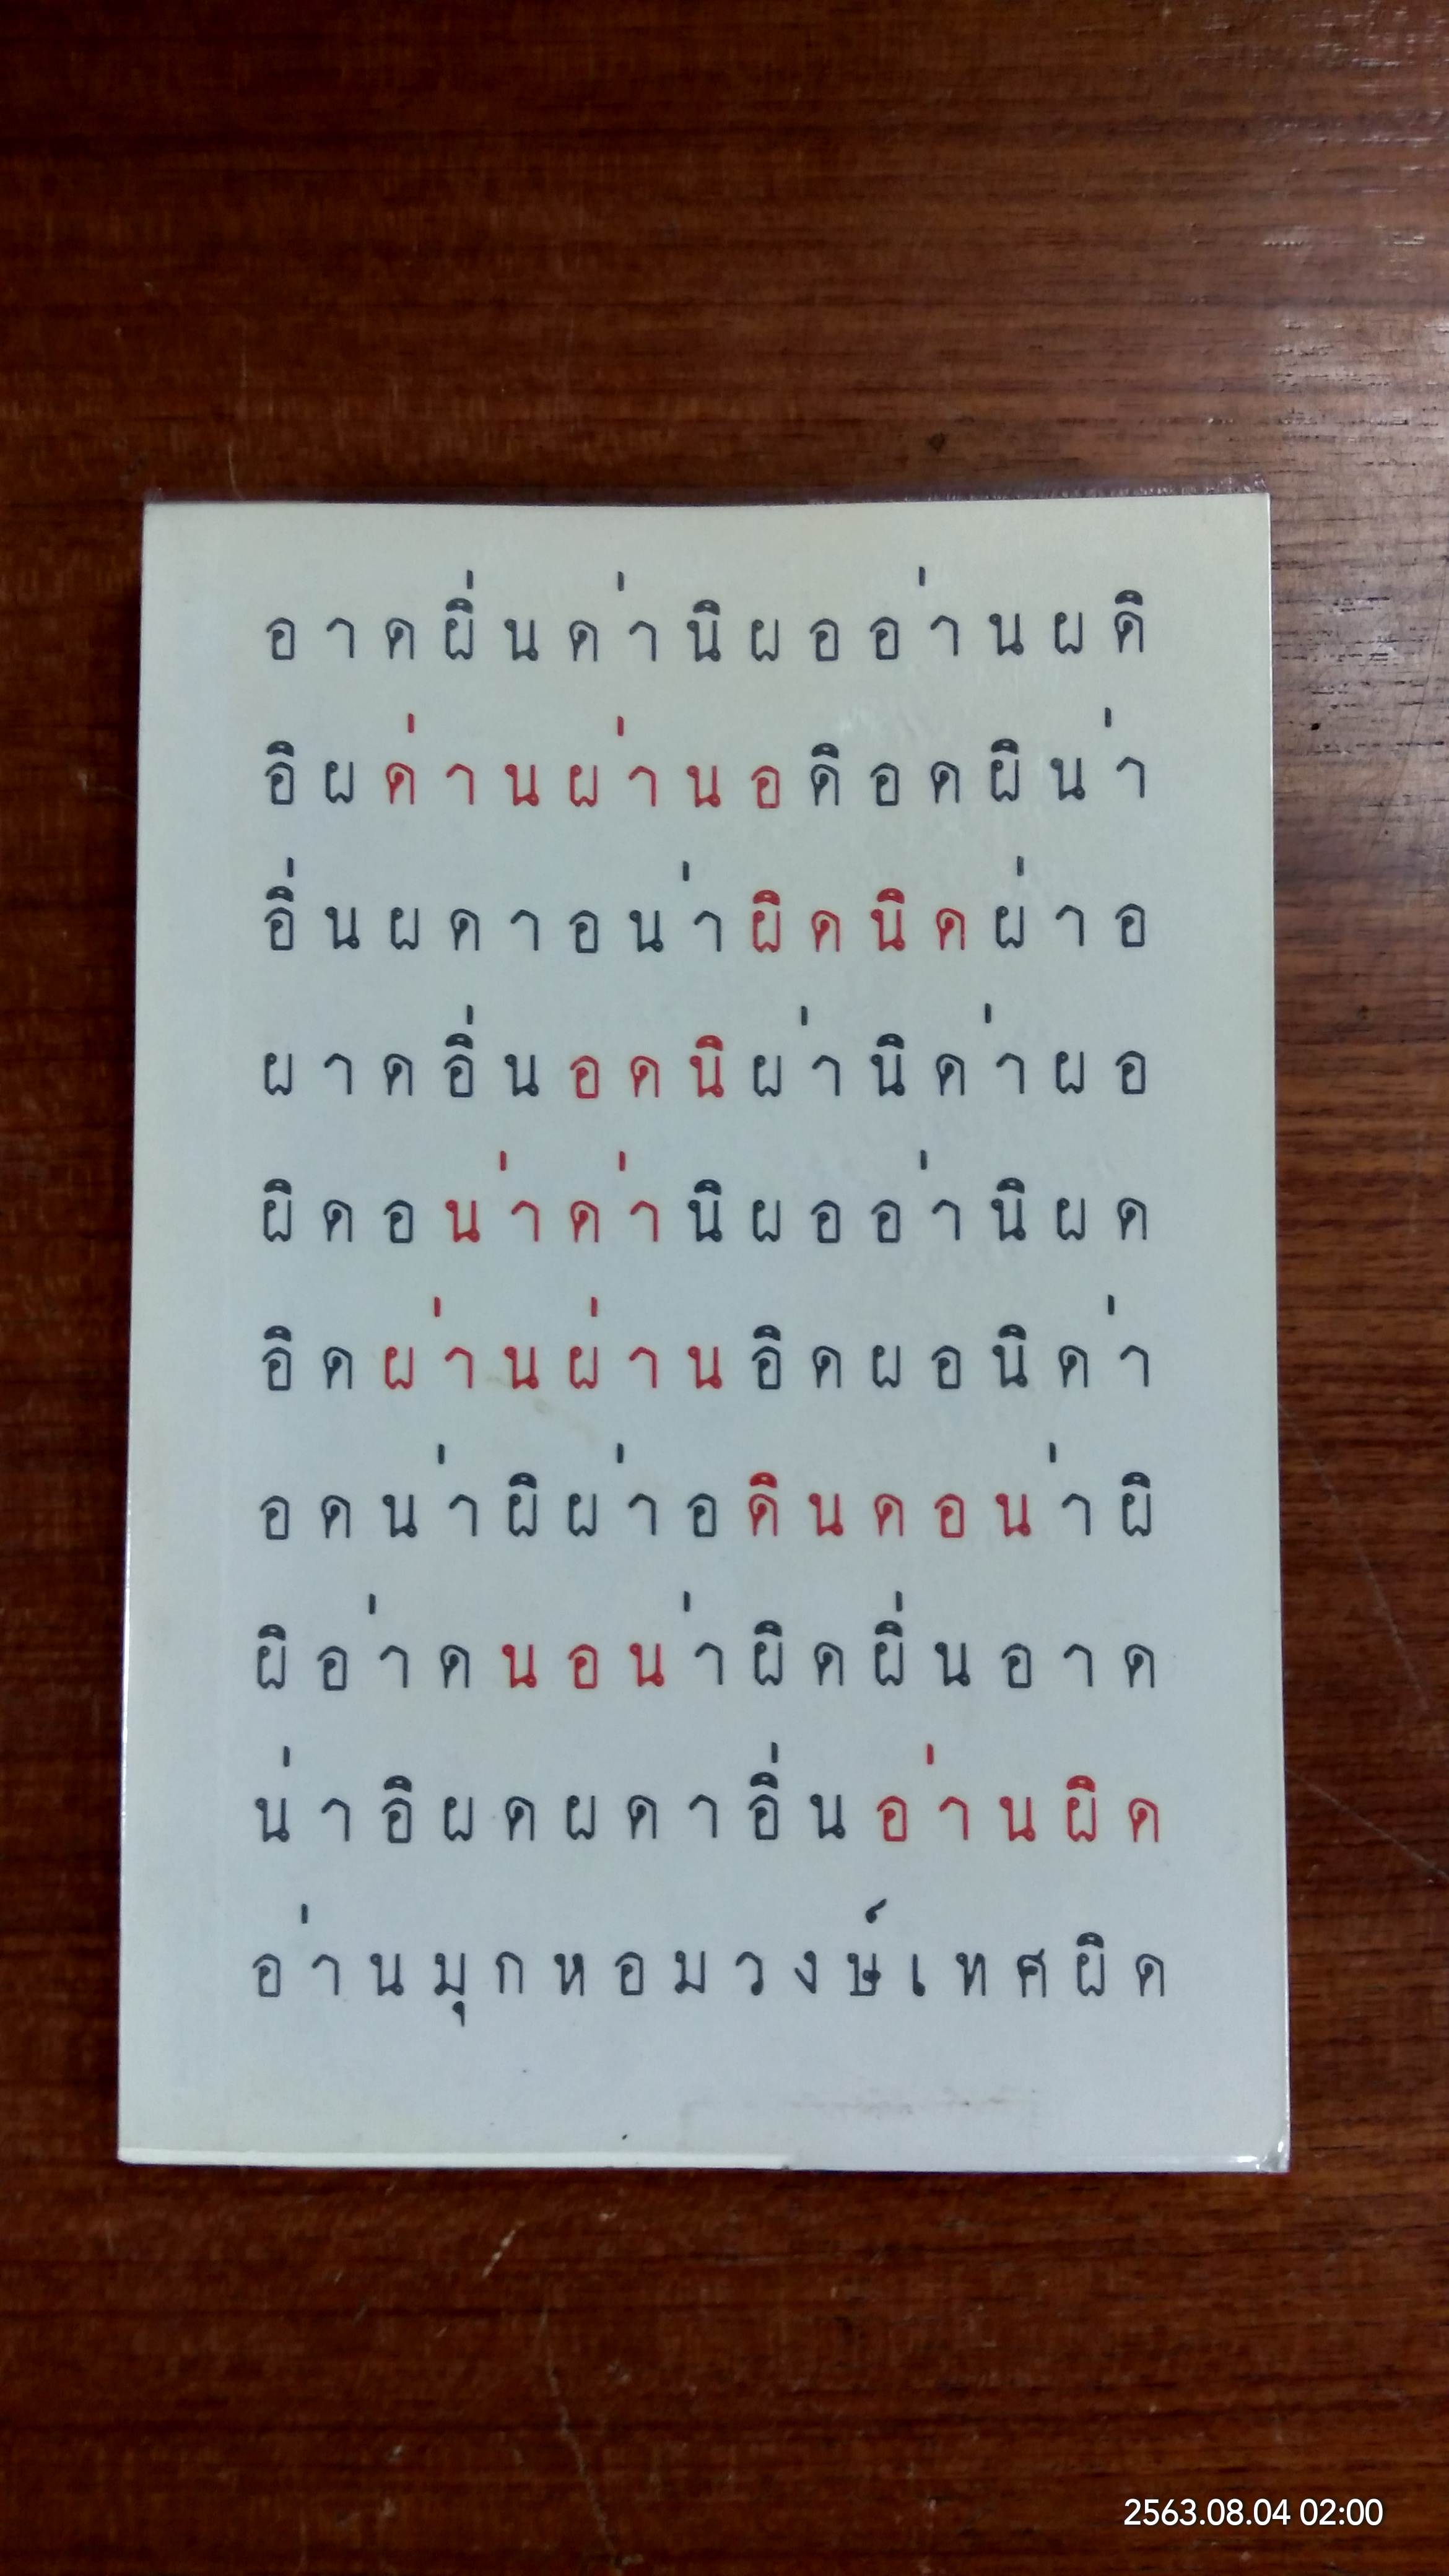 อาดผิ่นด่านิผออ่านผดิ
อิผด่านผ่านอดิอดผิน่า
อิ่นผดาอน่าผิดนิดผ่าอ
ผาดอิ่นอดนิผ่านิด่าผอ
ผิดอน่าด่านิผออ่านิผด
อิดผ่านผ่านอิดผอนิด่า
อดน่าผิผ่าอดินดอน่าผิ
ผิอ่าดนอน่าผิดผิ่นอาด
น่าอิผดผดาอิ่นอ่านผิด
อ่านมุกหอมวงษ์เทศผิด
2563.08.04 02:00